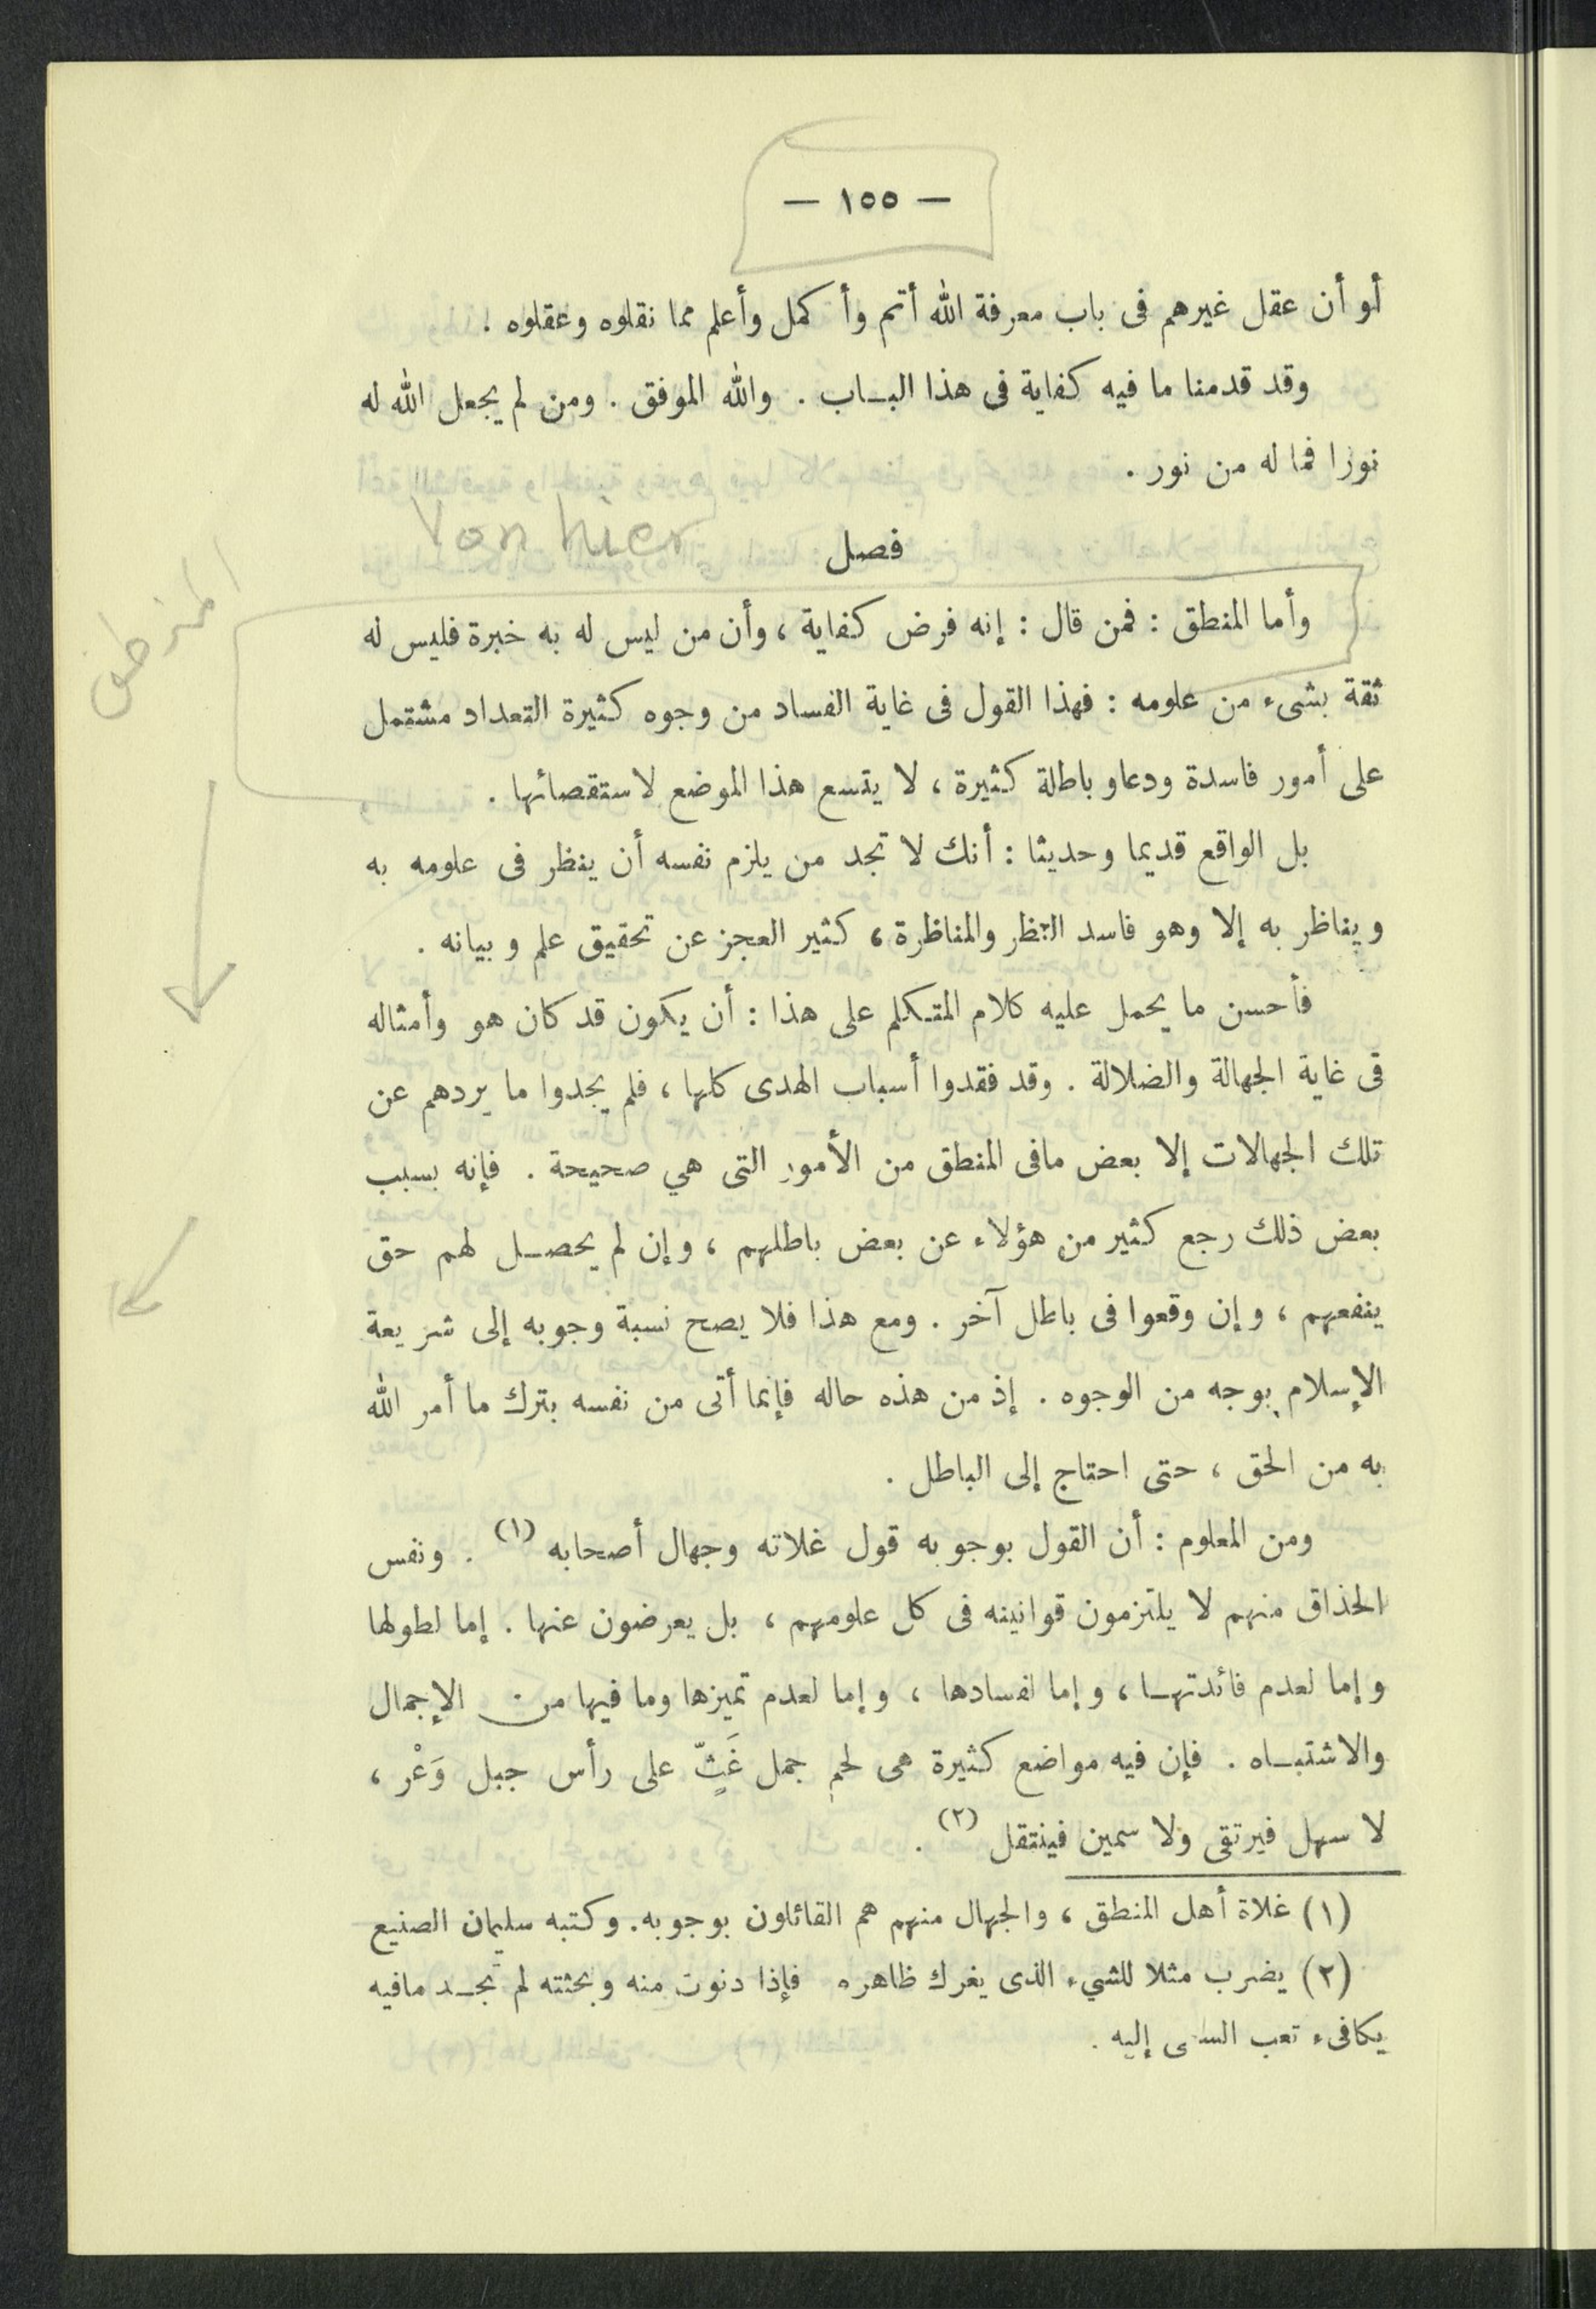 — ١٥٥ —
أو أن عقل غيرهم فى باب معرفة الله أتم وأكمل وأعلم مما نقلوه وعقلوه !
وقد قدمنا ما فيه كفاية فى هذا البـاب . والله الموفق . ومن لم يجعل الله له
نورا فما له من نور .
Von hier
فصل
المنطق
وأما المنطق : فمن قال : إنه فرض كفاية ، وأن من ليس له به خبرة فليس له
ثقة بشىء من علومه : فهذا القول فى غاية الفساد من وجوه كثيرة التعداد مشتمل
على أمور فاسدة ودعاو باطلة كثيرة ، لا يتسع هذا الموضع لاستقصائها .
بل الواقع قديما وحديثا : أنك لا تجد من يلزم نفسه أن ينظر فى علومه به
ويناظر به إلا وهو فاسد النظر والمناظرة ، كثير العجز عن تحقيق علم وبيانه .
فأحسن ما يحمل عليه كلام المتكلم على هذا : أن يكون قد كان هو وأمثاله
فى غاية الجهالة والضلالة . وقد فقدوا أسباب الهدى كلها ، فلم يجدوا ما يردهم عن
تلك الجهالات إلا بعض مافى المنطق من الأمور التى هي صحيحة . فإنه بسبب
بعض ذلك رجع كثير من هؤلاء عن بعض باطلهم ، وإن لم يحصـل لهم حق
ينفعهم ، وإن وقعوا فى باطل آخر . ومع هذا فلا يصح نسبة وجوبه إلى شريعة
الإسلام بوجه من الوجوه . إذ من هذه حاله فإنما أتى من نفسه بترك ما أمر الله
به من الحق ، حتى احتاج إلى الباطل .
ومن المعلوم : أن القول بوجوبه قول غلاته وجهال أصحابه (١) . ونفس
الحذاق منهم لا يلتزمون قوانينه فى كل علومهم ، بل يعرضون عنها . إما لطولها
وإما لعدم فائدتهـا ، وإما لفسادها ، وإما لعدم تميزها وما فيها من الإجمال
والاشتبـاه . فإن فيه مواضع كثيرة هى لحم جمل غَثٍّ على رأس جبل وَعْر ،
لا سهل فيرتقى ولا سمين فينتقل (٢) .
(١) غلاة أهل المنطق ، والجهال منهم هم القائلون بوجوبه. وكتبه سليمان الصنيع
(٢) يضرب مثلا للشيء الذى يغرك ظاهره فإذا دنوت منه وبحثته لم تجـد مافيه
يكافىء تعب السعى إليه .